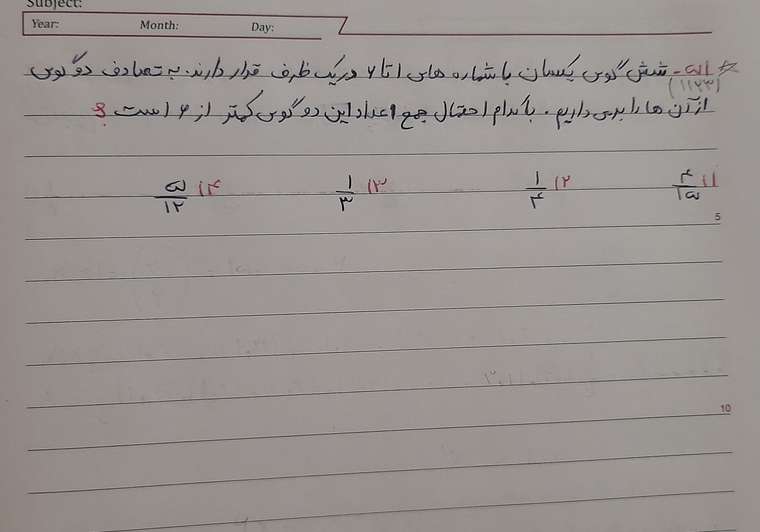 Subject:
Year: Month: Day:
۵۱- شش گوی یکسان با شماره های ۱ تا ۶ در یک ظرف قرار دارند. به تصادف دو گوی
(۱۱۲۳)
از آن ها را بر می داریم. با کدام احتمال جمع اعداد این دو گوی کمتر از ۶ است ؟
۱) ۴/۱۵ ۲) ۱/۴ ۳) ۱/۳ ۴) ۵/۱۲
5
10